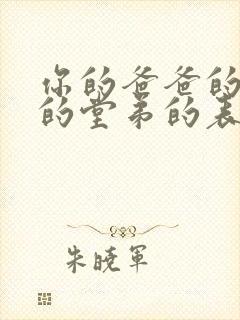 你的爸爸的
的堂弟的表
朱晓军